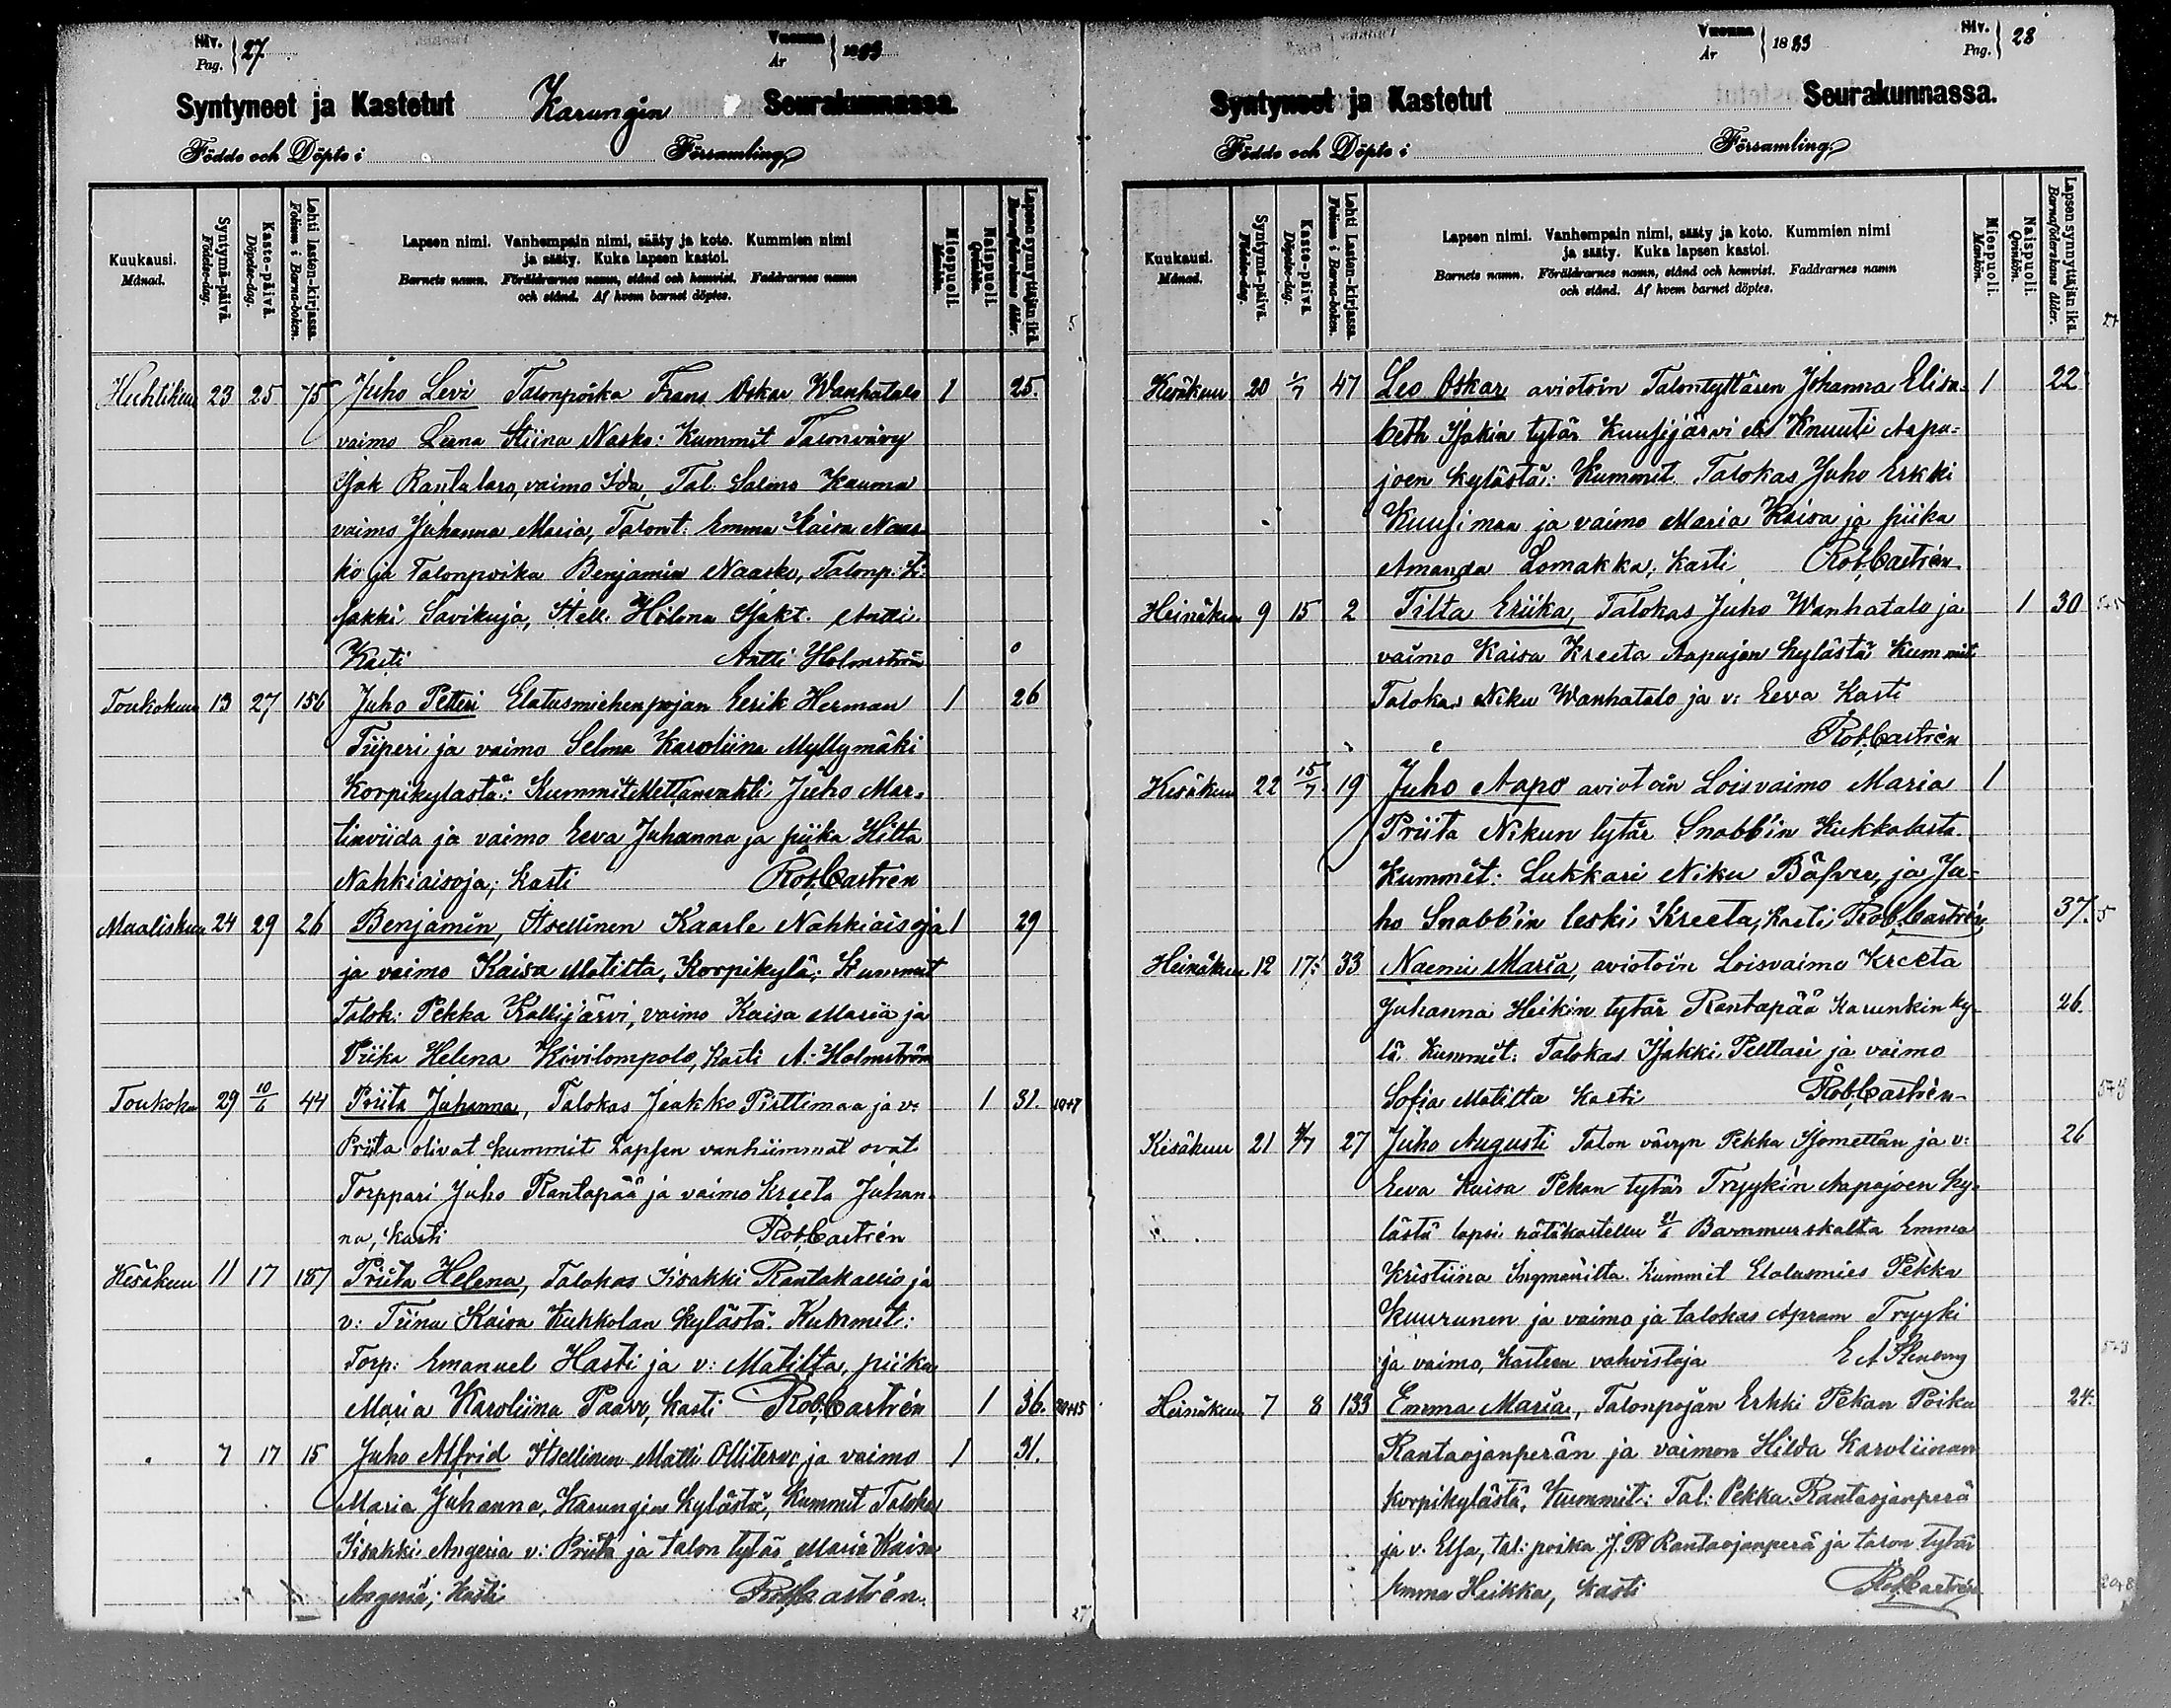 Siv. Pag. } 27
Vuonna År } 1883
Syntyneet ja Kastetut Karungin Seurakunnassa.
Födde och Döpte i Församling
Kuukausi. Månad.
Syntymä-päivä. Födelse-dag.
Kaste-päivä. Döpelse-dag.
Lehti lasten-kirjassa. Folium i Barna-boken.
Lapsen nimi. Vanhempain nimi, sääty ja koto. Kummien nimi
ja sääty. Kuka lapsen kastoi.
Barnets namn. Föräldrarnes namn, stånd och hemvist. Faddrarnes namn
och stånd. Af hvem barnet döptes.
Miespuoli. Mankön.
Naispuoli. Qvinkön.
Lapsen synnyttäjän ikä. Barnaföderskans ålder.
Huhtikuu 23 25 75 Juho Levi Talonpoika Frans Oskar Wanhatalo 1 25.
vaimo Leena Stiina Nasko: Kummit Talonvävy
Isak Rantalaro, vaimo Ida, Tal. Salmo Kauma
vaimo Juhanna Maria, Talont. Emma Kaisa Naas
ko ja Talonpoika Benjamin Naasko, Talonp.
Jakki Savikuja, Itell. Helena Isakt.
Kasti Antti Holmström
Toukokuu 13 27 156 Juho Petteri Elatusmiehenpojan Eerik Herman 1 26
Tiiperi ja vaimo Selma Karoliina Myllymäki
Korpikylästä: Kummit Mettänvahti Juho Mar-
tinviida ja vaimo Eeva Juhanna ja piika Hilta
Nahkiaisoja; kasti Rob. Castrén
Maaliskuu 24 29 26 Benjamin, Itsellinen Kaarle Nahkiaisoja 1 29
ja vaimo Kaisa Matilta, Korpikylä; Kummit
Talok: Pekka Kallijärvi, vaimo Kaisa Maria ja
Piika Helena Kivilompolo, kasti A. Holmström
Toukoku 29 10/6 44 Priita Juhanna, Talokas Jaakko Pirttimaa ja v: 1 31.
Priita olivat kummit Lapsen vanhiimmat ovat
Torppari Juho Rantapää ja vaimo Kreeta Juhan-
na, kasti Rob. Castrén
Kesäkuu 11 17 187 Priita Helena, Talokas Iisakki Rantakallio ja
v: Tiina Kaisa Kukkolan kylästä. Kummit:
Torp: Emanuel Hasti ja v: Matilta, piika
Maria Karoliina Paavo, kasti Rob. Castrén 1 36.
" 7 17 15 Juho Alfrid Itsellinen Matti Olliteroo ja vaimo 1 31.
Maria Juhanna, Karungin kylästä, Kummit Talokas
Iisakki Angeria v: Priita ja talon tytär Maria Kaisa
Angeria; kasti Rob. Castrén.
Vuonna År } 1883
Siv. Pag. } 28
Syntyneet ja Kastetut Seurakunnassa.
Födde och Döpte i Församling
Kuukausi. Månad.
Syntymä-päivä. Födelse-dag.
Kaste-päivä. Döpelse-dag.
Lehti lasten-kirjassa. Folium i Barna-boken.
Lapsen nimi. Vanhempain nimi, sääty ja koto. Kummien nimi
ja sääty. Kuka lapsen kastoi.
Barnets namn. Föräldrarnes namn, stånd och hemvist. Faddrarnes namn
och stånd. Af hvem barnet döptes.
Miespuoli. Mankön.
Naispuoli. Qvinkön.
Lapsen synnyttäjän ikä. Barnaföderskans ålder.
Kesäkuu 20 1/7 47 Leo Oskar aviotoin Talontyttären Johanna Elisa- 1 22
beth Isakin tytär Kuusijärvi eli Knuuti Aapa-
joen kylästä: Kummit Talokas Juho Erkki
Kuusimaa ja vaimo Maria Kaisa ja piika
Amanda Lomakka; kasti Rob. Castrén
Heinäkuu 9 15 2 Tilta Eriika, Talokas Juho Wanhatalo ja 1 30
vaimo Kaisa Kreeta Aapajen kylästä Kummit
Talokas Niku Wanhatalo ja v: Eeva Kasti
Rob. Castrén
Kesäkuu 22 15/7 19 Juho Aapo aviotoin Loisvaimo Maria 1
Priita Nikun tytär Snabb'in Kukkolasta.
Kummit: Lukkari Niku Bäfver, ja Ju-
ho Snabb'in leski Kreeta; kasti Rob. Castrén 37.
Heinäkuu 12 17 33 Naemi Maria, aviotoin Loisvaimo Kreeta
Juhanna Heikin tytär Rantapää Karunkin ky- 26.
lä Kummit: Talokas Isakki Pelttari ja vaimo
Sofia Matilta kasti Rob. Castrén
Kesäkuu 21 27 Juho Augusti Talon vävyn Pekka Isomettän ja v: 26
Eeva Kaisa Pekan tytär Tryyki'n Aapajoen ky-
lästä lapsi hätäkastettu 21/6 Barnmurskalta Emma
Kristiina Ingman'ilta. Kummit Elatusmies Pekka
Kuurunen ja vaimo ja talokas Apram Tryyki
ja vaimo, kasteen vahvistaja
Heinäkuu 7 8 133 Emma Maria, Talonpojan Erkki Pekan Poika 24.
Rantaojanperän ja vaimon Hilda Karoliinan
Korpikylästä, Kummit: Tal: Pekka Rantaojanperä
ja v. Elsa, tal: poika J. P. Rantaojanperä ja talon tytär
Emma Heikka, kasti Rob. Castrén